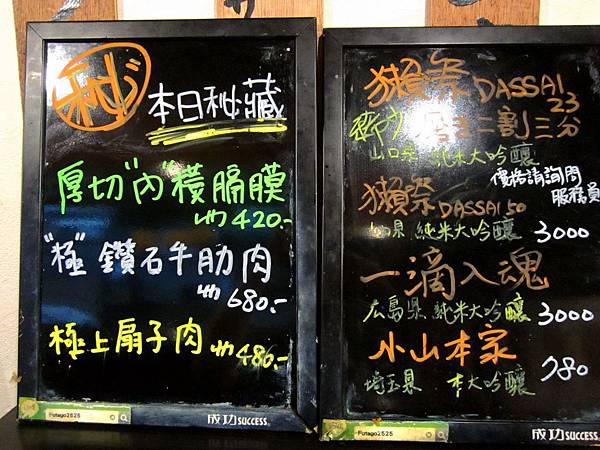 秘
本日秘藏
厚切"內"橫膈膜
420.-
"極"鑽石牛肋肉
680.-
極上扇子肉
480.-
Futago2525
成功 SUCCESS
獺祭 DASSAI 23
二割三分
山口県 純米大吟釀
價格請詢問
服務員
獺祭 DASSAI 50
山口県 純米大吟釀 3000
一滴入魂
広島県 純米大吟釀 3000
小山本家
埼玉県 本大吟釀 780
Futago2525
成功 SUCCESS